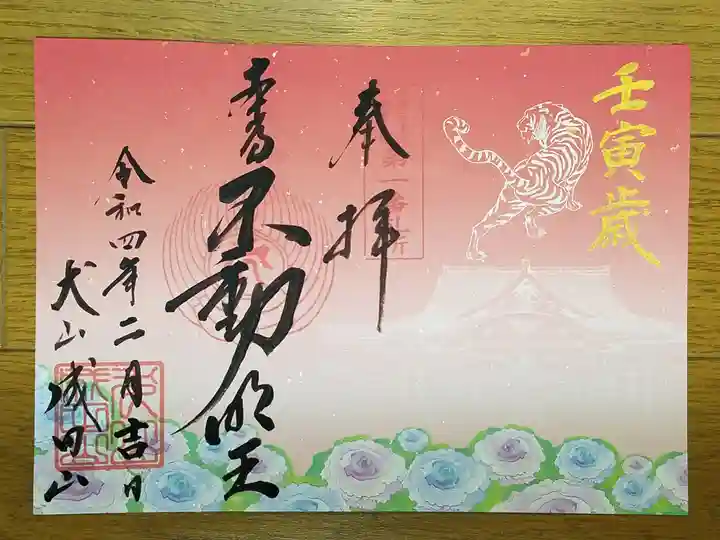 壬寅歳
奉拝
第一番札所
不動明王
令和四年二月吉日
犬山成田山